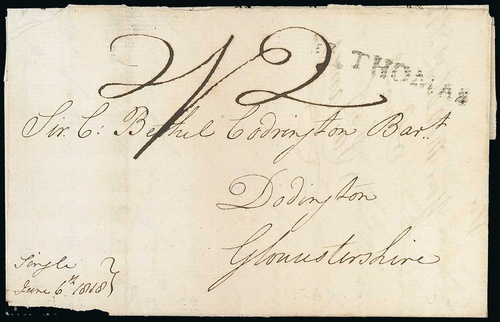 2/2
St THOMAS
Sir. C: Bethel Codrington Bart.
Dodington
Gloucestershire
Single
June 6th 1818